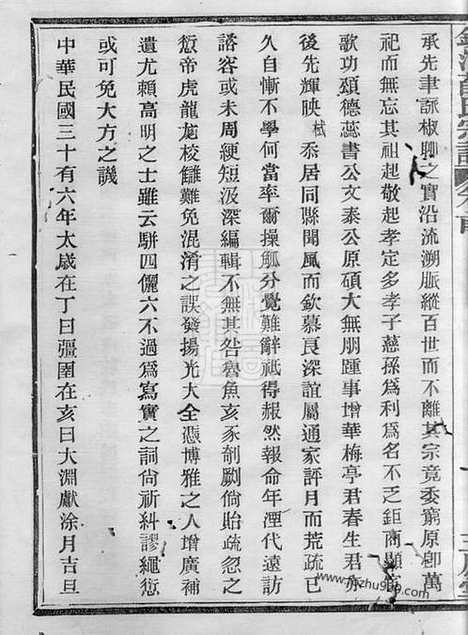 承先聿詠椒聊之實沿流溯脈縱百世而不離其宗竟委窮原卽萬
祀而無忘其祖起敬起孝定多孝子慈孫爲利爲名不乏鉅商顯
歌功頌德蕊書公文泰公原碩大無朋踵事增華梅亭君春生君亦
後先輝映棫忝居同縣聞風而欽慕良深誼屬通家評月而荒疏已
久自慚不學何當率爾操觚分覺難辭祗得赧然報命年湮代遠訪
諮容或未周綆短汲深編輯不無其咎魯魚亥豕剞劂倘貽疏忽之
愆帝虎龍尨校讎難免混淆之誤發揚光大全憑博雅之人增廣補
遺尤賴高明之士雖云駢四儷六不過爲寫實之詞尙祈糾謬繩愆
或可免大方之譏
中華民國三十有六年太歲在丁曰彊圉在亥曰大淵獻涂月吉旦